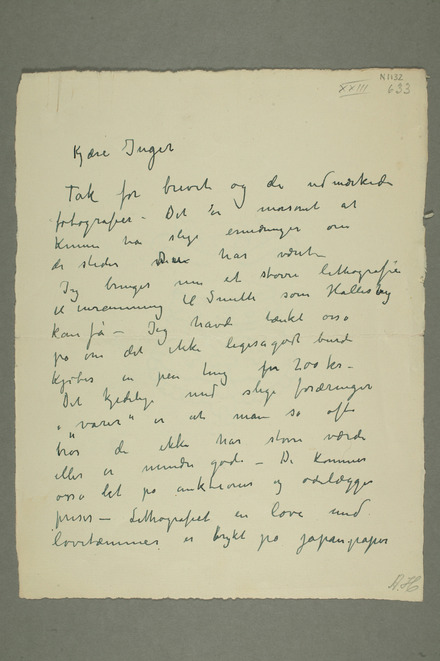 N1132
XXIII 633
Kjære Inger
Tak for brevet og de udmærkede
fotografier – Det er morsomt at
kunne ha slige erindringer om
de steder man har været
Jeg bringer nu et større lithografie
til inramning til som Halles
kan få – Jeg havde tænkt osså
på om det ikke ligesågodt burde
kjøbes en pen ting for 200 kr –
Det kjedelige med slige foræringer
i "varer" er at man så ofte
tror de ikke har større værdi
eller er mindre gode – De kommer
osså let på auktioner og ødelægger
priser – Lithografiet en løve med
løvetæmmer er trykt på japanpapir